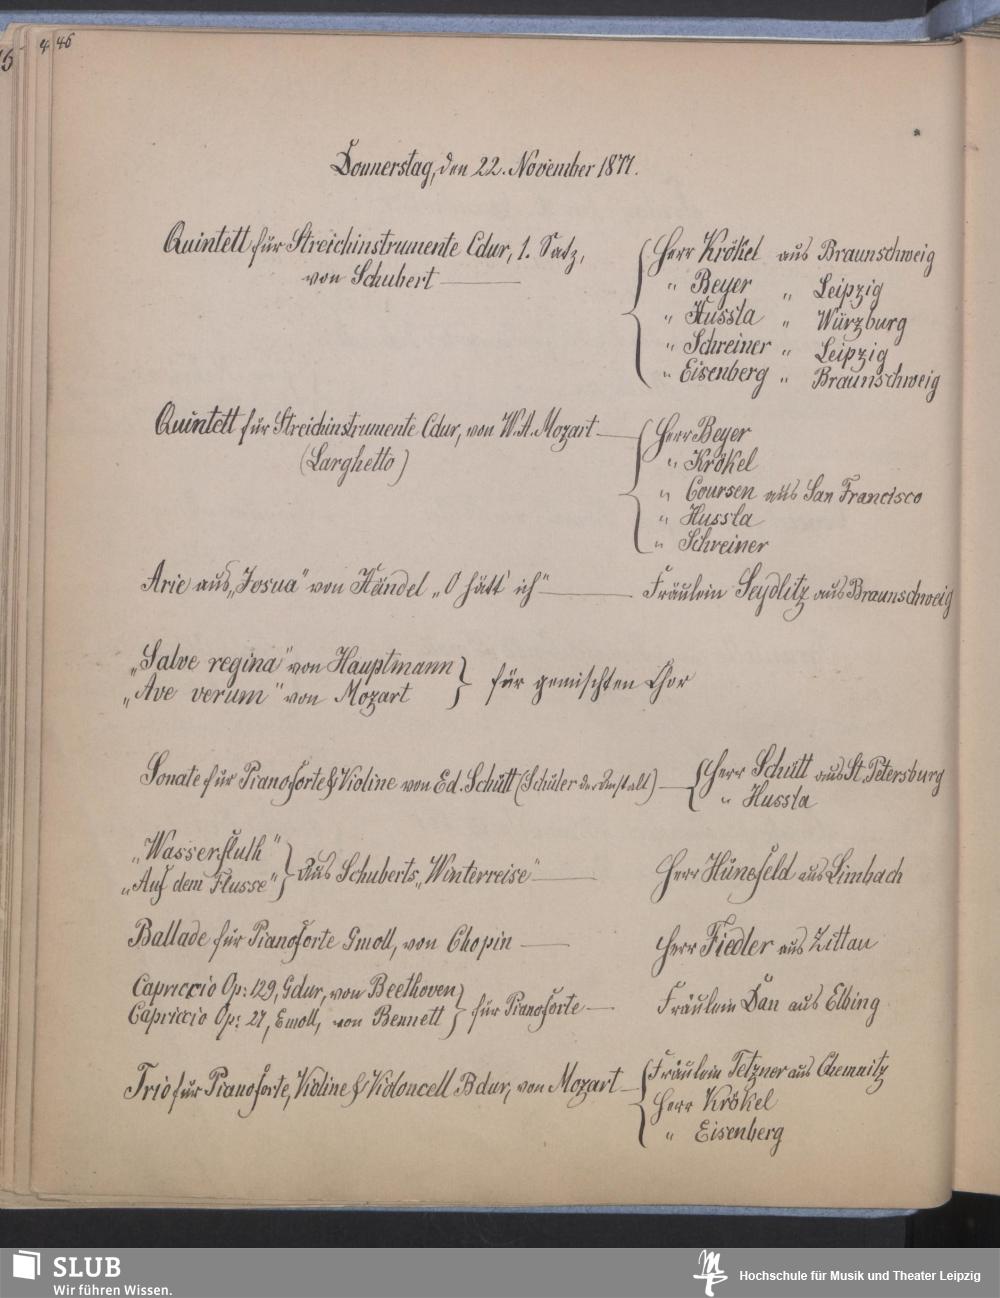 46
Donnerstag, den 22. November 1877.
Quintett für Streichinstrumente Cdur, 1. Satz,
von Schubert
Herr Krökel aus Braunschweig
" Beyer " Leipzig
" Hussla " Würzburg
" Schreiner " Leipzig
" Eisenberg " Braunschweig
Quintett für Streichinstrumente Cdur, von W. A. Mozart
(Larghetto)
Herr Beyer
" Krökel
" Coursen aus San Francisco
" Hussla
" Schreiner
Arie aus „Josua" von Händel „O hätt' ich" Fräulein Seydlitz aus Braunschweig
„Salve regina" von Hauptmann
„Ave verum" von Mozart
für gemischten Chor
Sonate für Pianoforte & Violine von Ed. Schütt (Schüler der Anstalt)
Herr Schütt aus St. Petersburg
" Hussla
„Wasserfluth"
„Auf dem Flusse"
aus Schuberts „Winterreise" Herr Hünefeld aus Limbach
Ballade für Pianoforte Gmoll, von Chopin Herr Fiedler aus Zittau
Capriccio Op: 129, Gdur, von Beethoven
Capriccio Op: 27, Emoll, von Bennett
für Pianoforte Fräulein Dan aus Elbing
Trio für Pianoforte, Violine & Violoncell Bdur, von Mozart
Fräulein Tetzner aus Chemnitz
Herr Krökel
" Eisenberg
SLUB
Wir führen Wissen.
Hochschule für Musik und Theater Leipzig